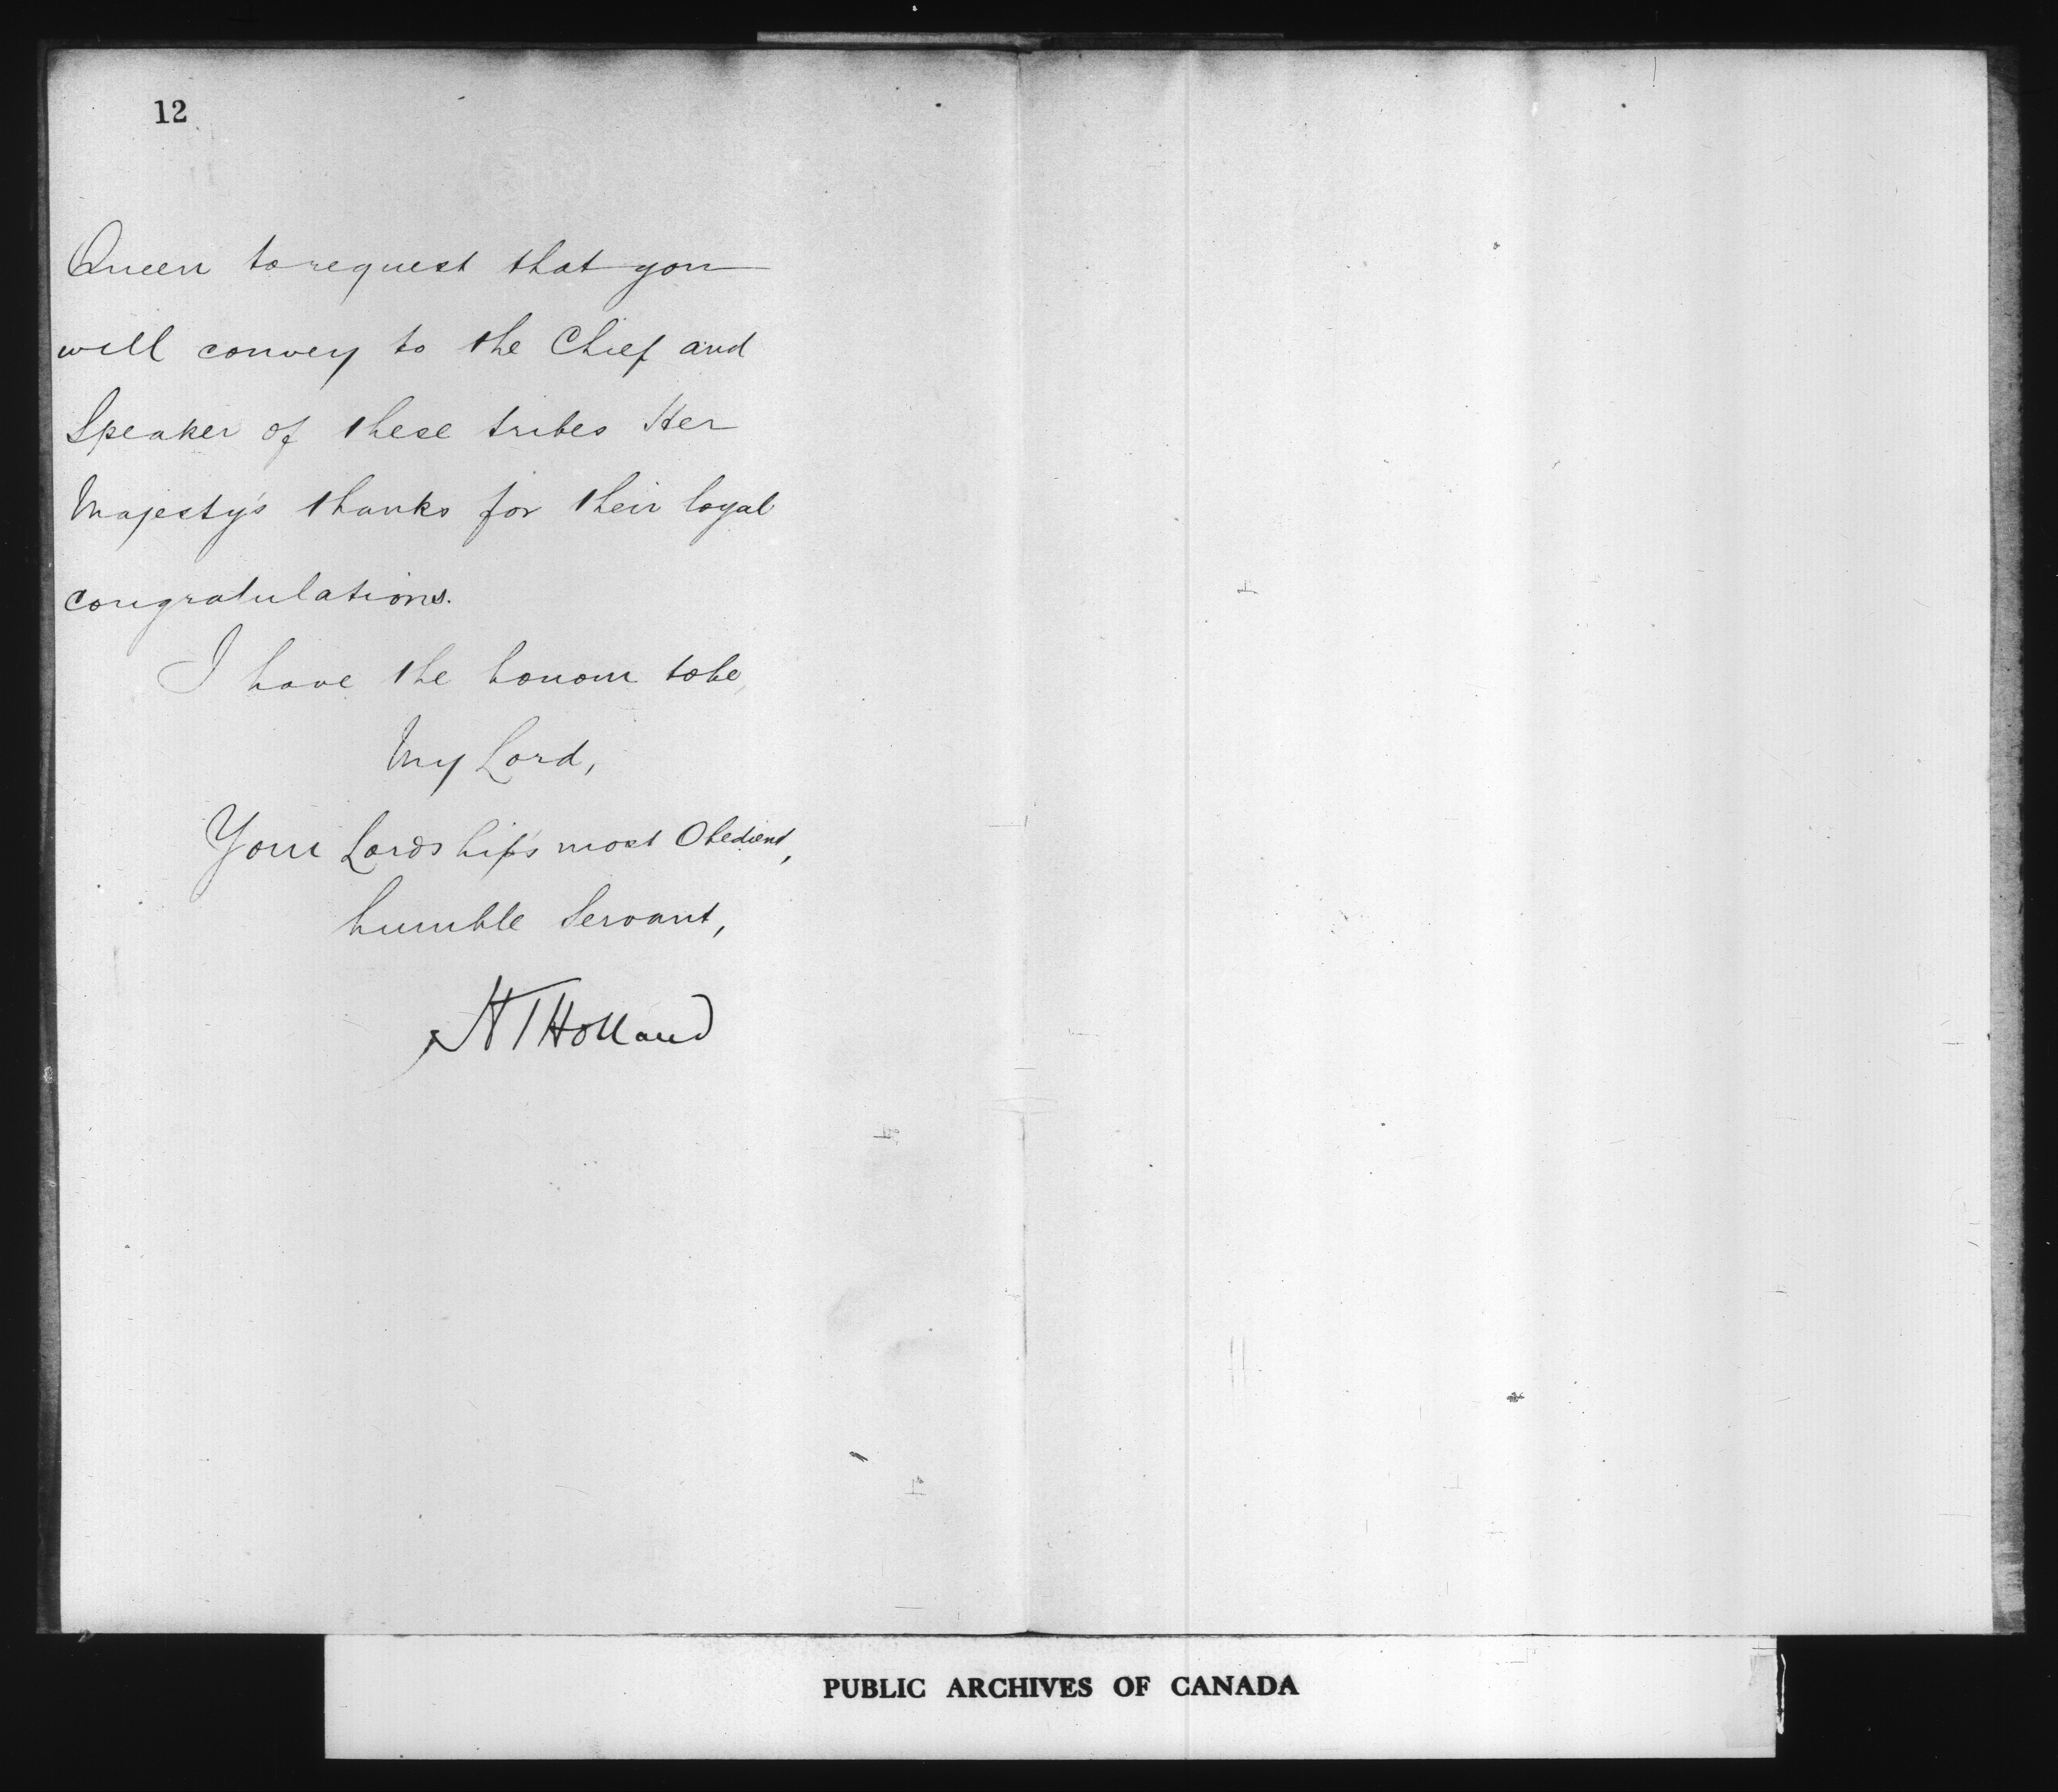 12
Queen to request that you
will convey to the Chief and
Speaker of these tribes Her
Majesty's thanks for their loyal
congratulations.
I have the honour to be,
My Lord,
Your Lordship's most Obedient,
humble Servant,
HTHolland
PUBLIC ARCHIVES OF CANADA